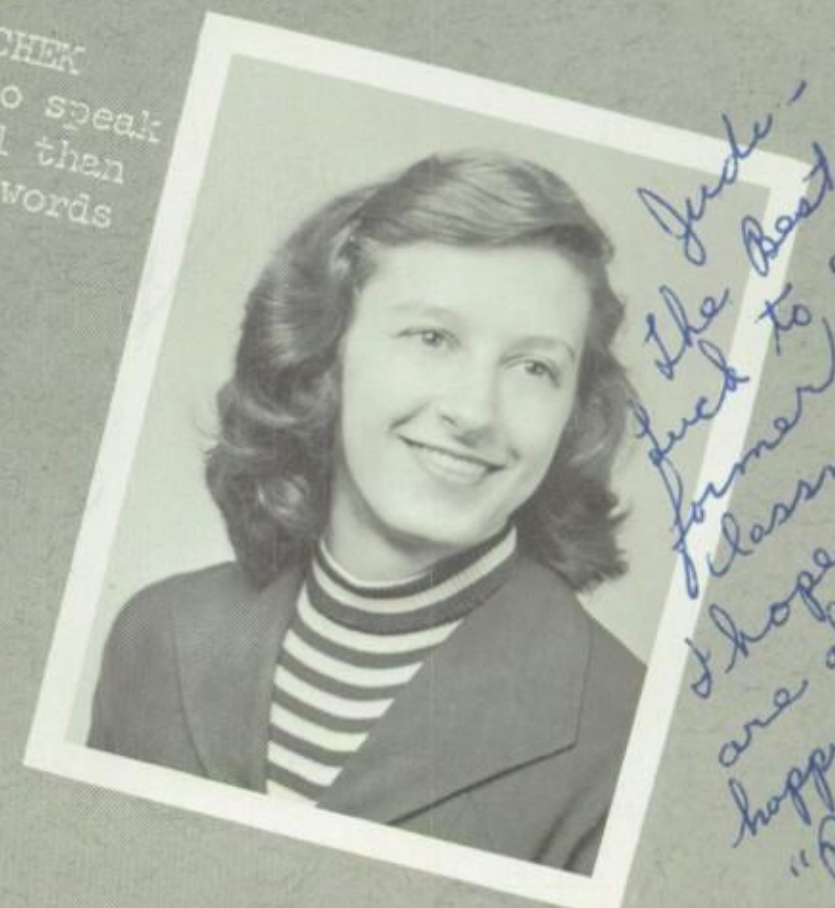 CHEK
o speak
l than
words
Judi -
The Best
Luck to
former
class
I hope
are
happ
"